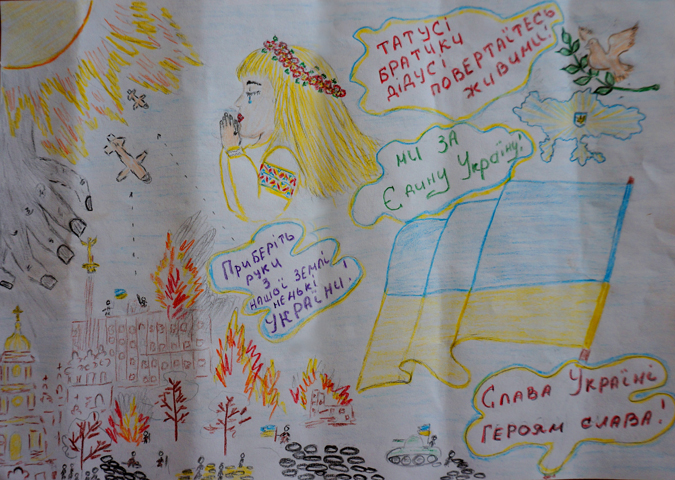 ТАТУСІ
БРАТИКИ
ДІДУСІ
ПОВЕРТАЙТЕСЬ
ЖИВИМИ!
МИ ЗА
ЄДИНУ УКРАЇНУ!
ПРИБЕРІТЬ
РУКИ
З
НАШОЇ ЗЕМЛІ
НЕНЬКІ
УКРАЇНИ!
СЛАВА УКРАЇНІ
ГЕРОЯМ СЛАВА!